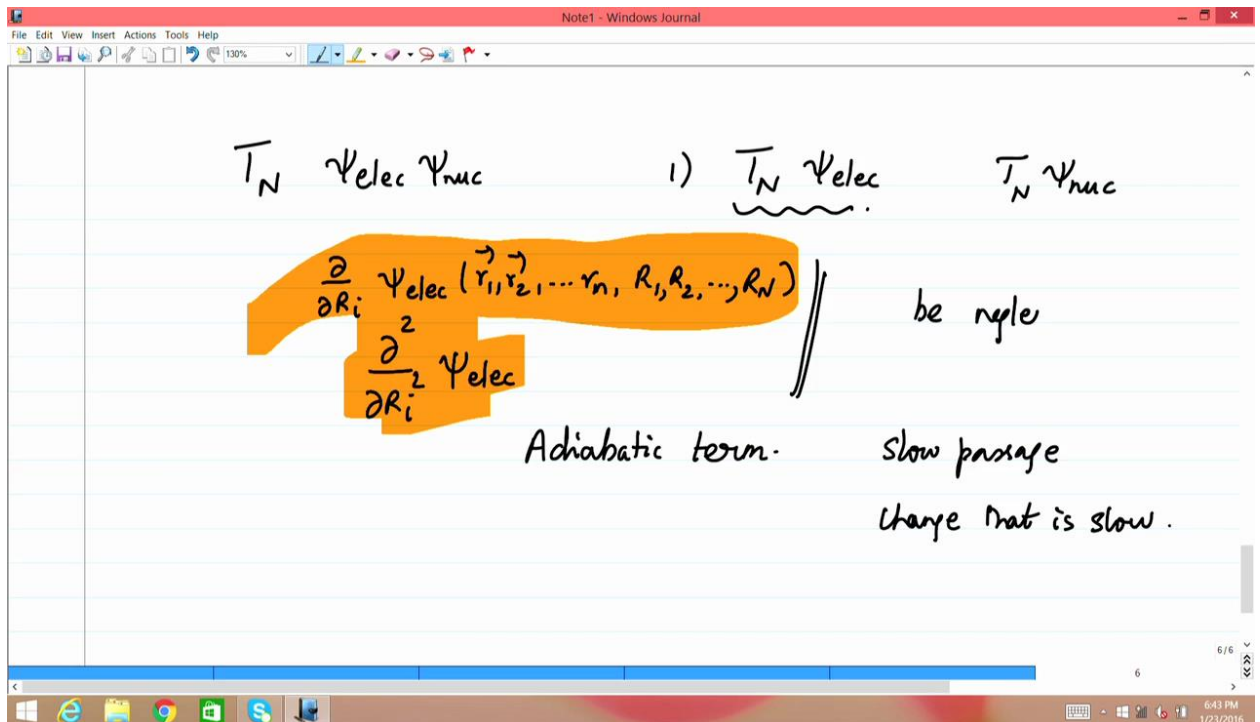 Note1 - Windows Journal
File Edit View Insert Actions Tools Help
130%
T_N Ψelec Ψnuc 1) T_N Ψelec T_N Ψnuc
∂/∂Ri Ψelec (r⃗1, r⃗2, ... rn, R1, R2, ..., RN)
be negle
∂²/∂Ri² Ψelec
Adiabatic term. slow passage
change that is slow.
6/6
6
6:43 PM
1/23/2016